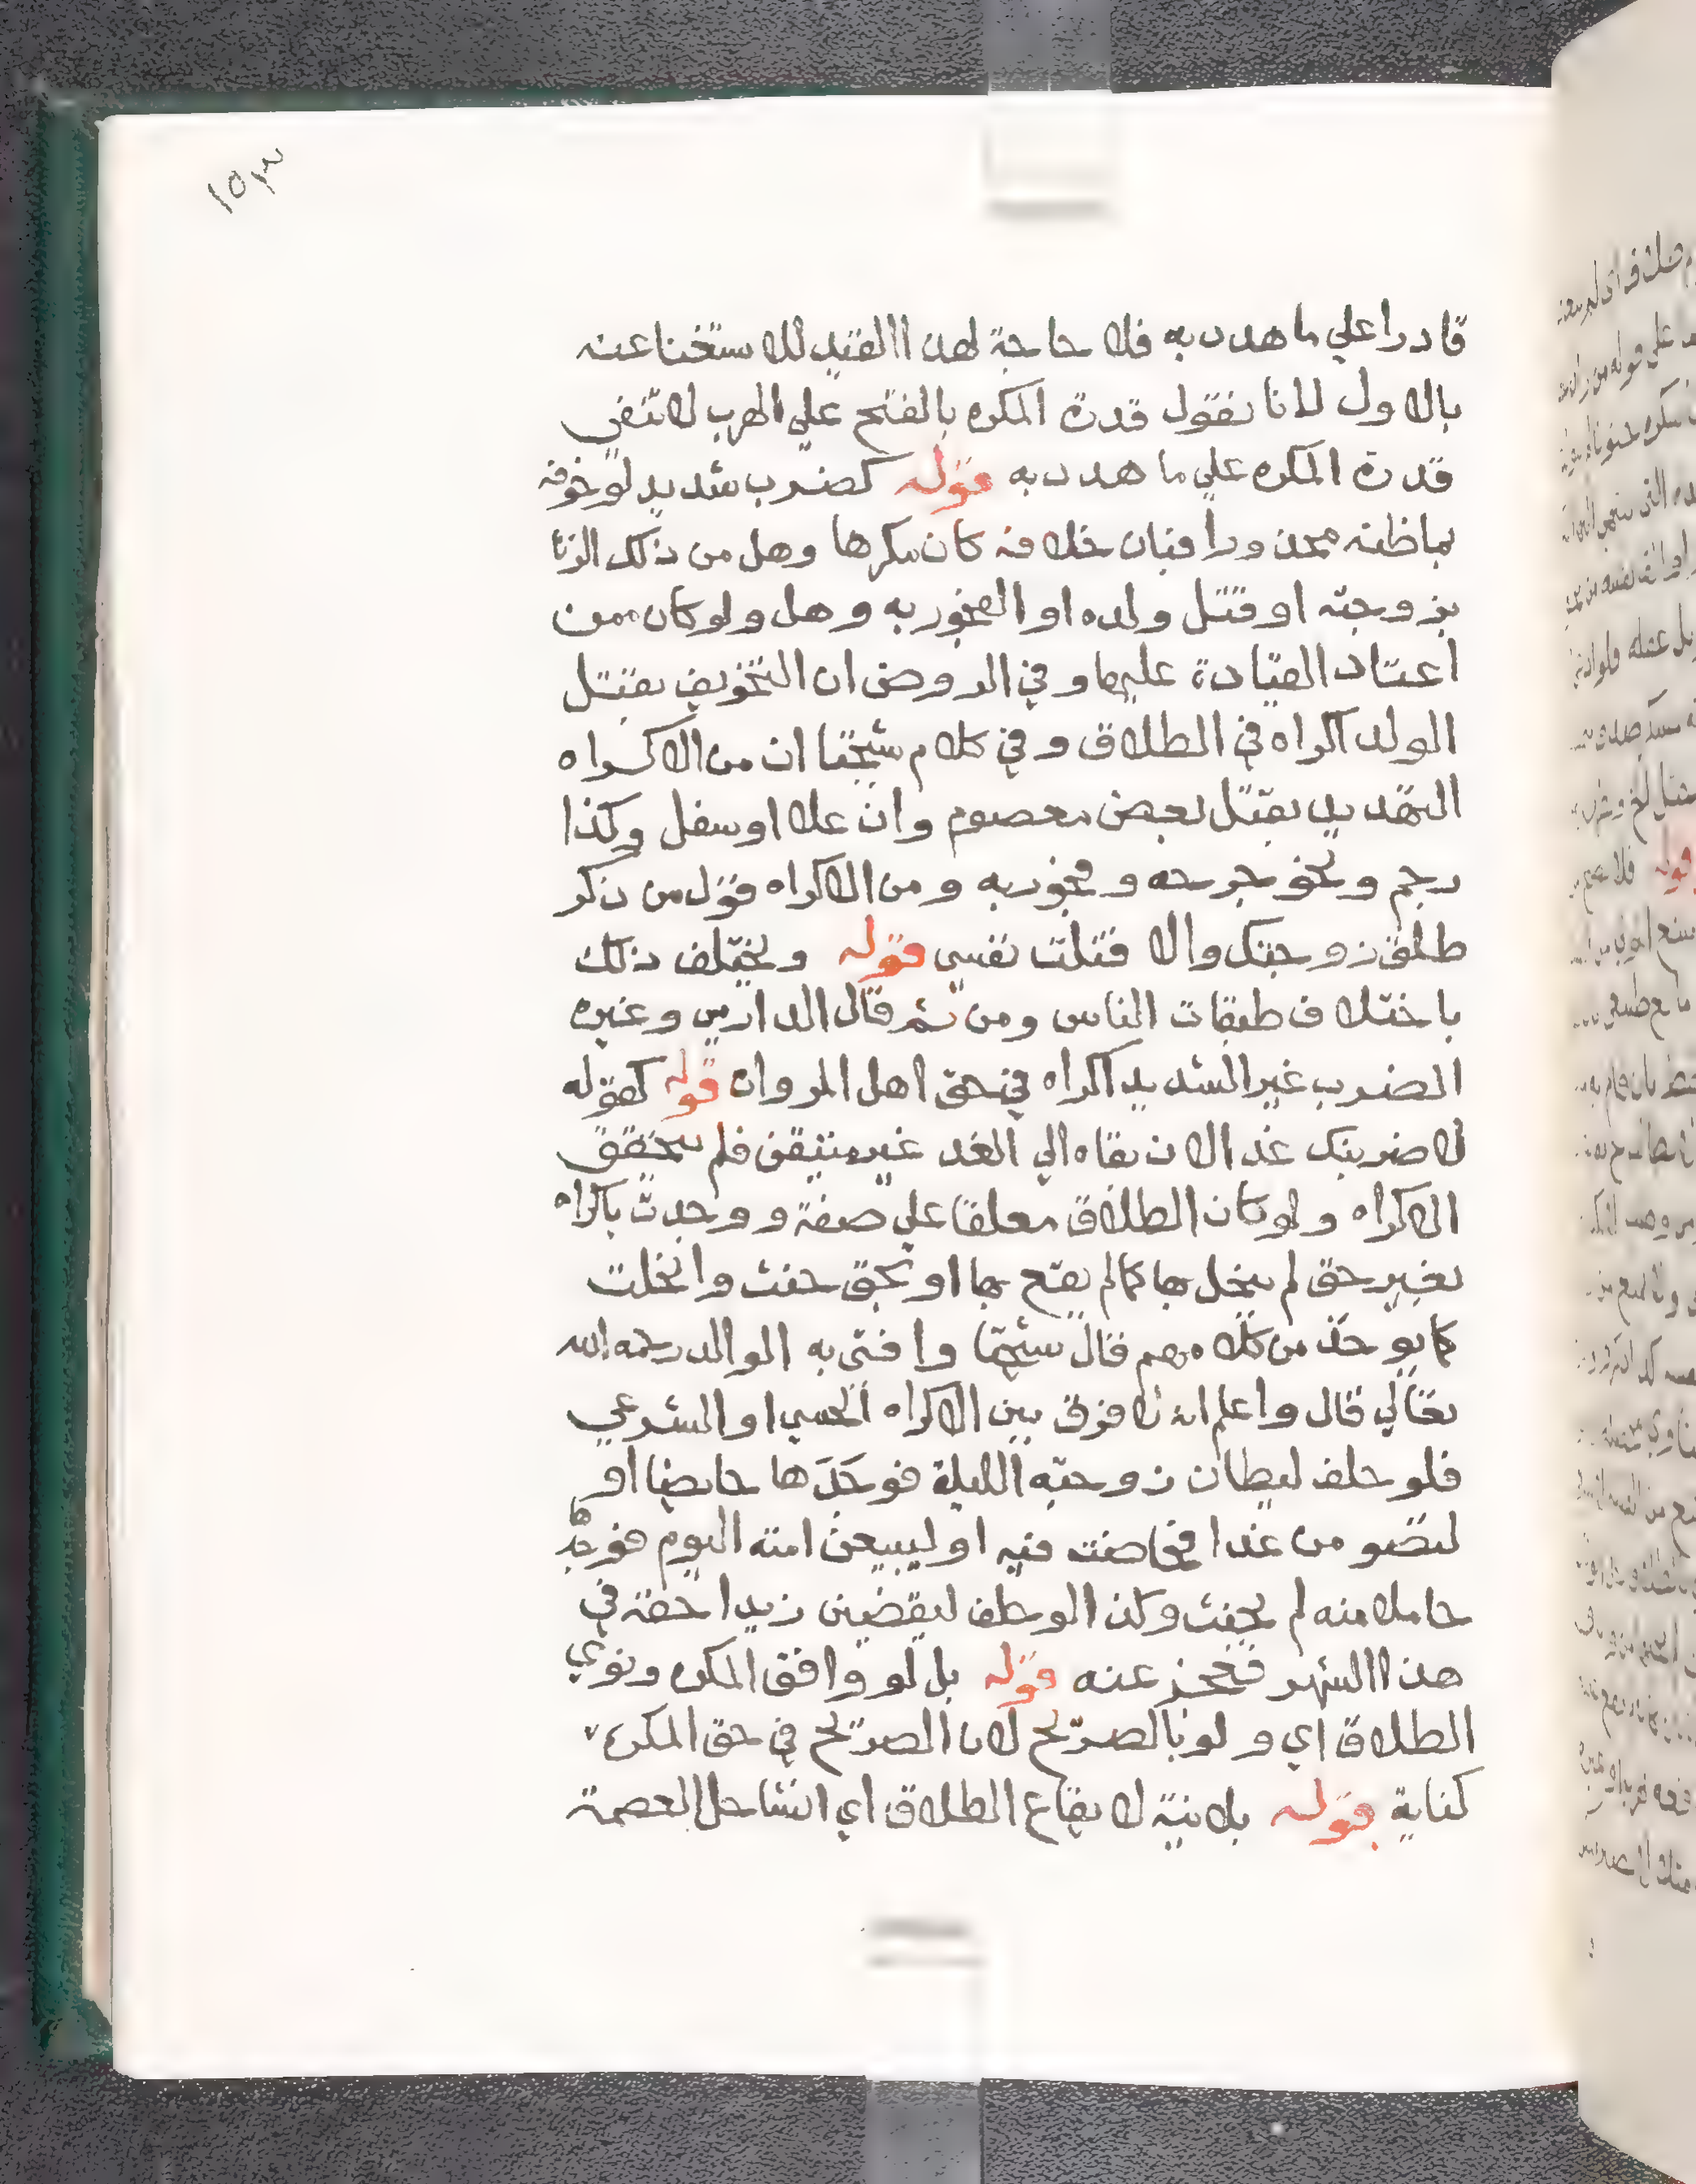 ١٥٣
قادرا علي ما هدد به فلا حاجة لهذا القيد للاستغنا عنه
بالاول لانا نقول قدرة المكره بالفتح علي الهرب لا تنفي
قدرة المكره علي ما هدد به قوله كضرب شديد لو خوفه
بما ظنه محذورا فبان خلافه كان مكرها وهل من ذلك الزنا
بزوجته او قتل ولده او الفجور به وهل ولو كان ممن
اعتاد القيادة عليهما وفي الروض ان التخويف بقتل
الولد اكراه في الطلاق وفي كلام شيخنا ان من الاكراه
التهديد بقتل بعض معصوم وان علا او سفل وكذا
رحم ونحو جرحه وفجور به ومن الاكراه قول من ذكر
طلق زوجتك والا قتلت نفسي قوله ويختلف ذلك
باختلاف طبقات الناس ومن ثم قال الدارمي وغيره
الضرب غير الشديد اكراه في حق اهل المروات قوله كقوله
لاضربنك غدا لان بقاه الي الغد غير متيقن فلم يتحقق
الاكراه ولو كان الطلاق معلقا علي صفة ووجدت باكراه
بغير حق لم ينحل بها كما لم يقع بها او بحق حنث وانحلت
كما يوخذ من كلامهم قال شيخنا وافتي به الوالد رحمه الله
تعالي قال واعلم انه لا فرق بين الاكراه الحسي او الشرعي
فلو حلف ليطان زوجته الليلة فوجدها حايضا او
لتصومن غدا فحاضت فيه او ليبيعن امته اليوم فوجدها
حاملا منه لم يحنث وكذا لو حلف ليقضين زيدا حقه في
هذا الشهر فعجز عنه قوله بل لو وافق المكره ونوي
الطلاق اي ولو بالصريح لان الصريح في حق المكره
كناية قوله بلا نية لايقاع الطلاق اي انشا حل العصمة